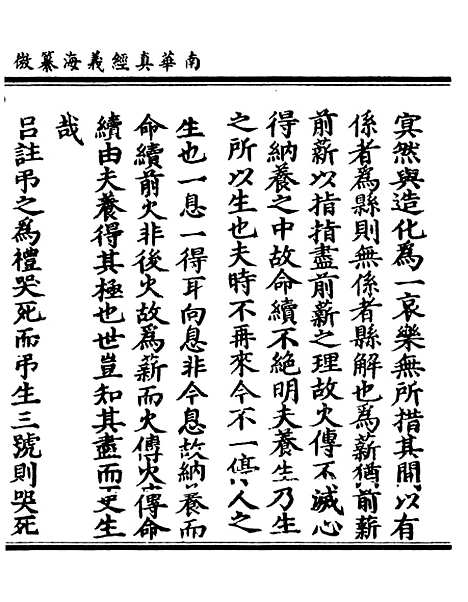 南華真經義海纂微
冥然與造化為一哀樂無所措其間以有
係者為縣則無係者縣解也為薪猶前薪
前薪以指指盡前薪之理故火傳不滅心
得納養之中故命續不絕明夫養生乃生
之所以生也夫時不再來今不一停人之
生也一息一得耳向息非今息故納養而
命續前火非後火故為薪而火傳火傳命
續由夫養得其極也世豈知其盡而更生
哉
呂註弔之為禮哭死而弔生三號則哭死